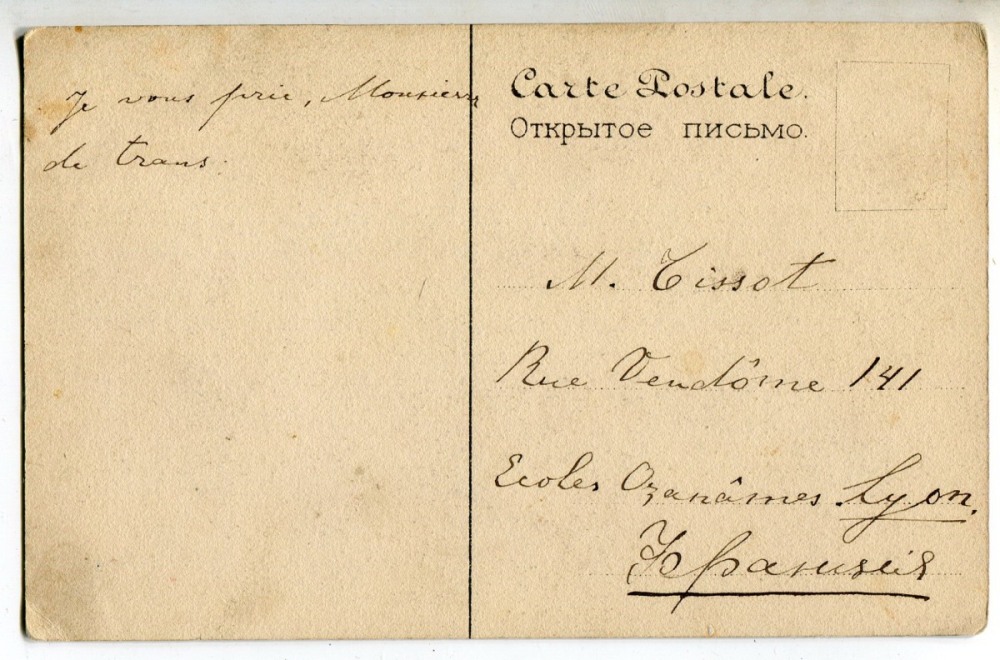 Je vous prie, Monsieur
de trans.
Carte Postale.
Открытое письмо.
M. Tissot
Rue Vendôme 141
Ecoles Ozanâmes Lyon.
Франція